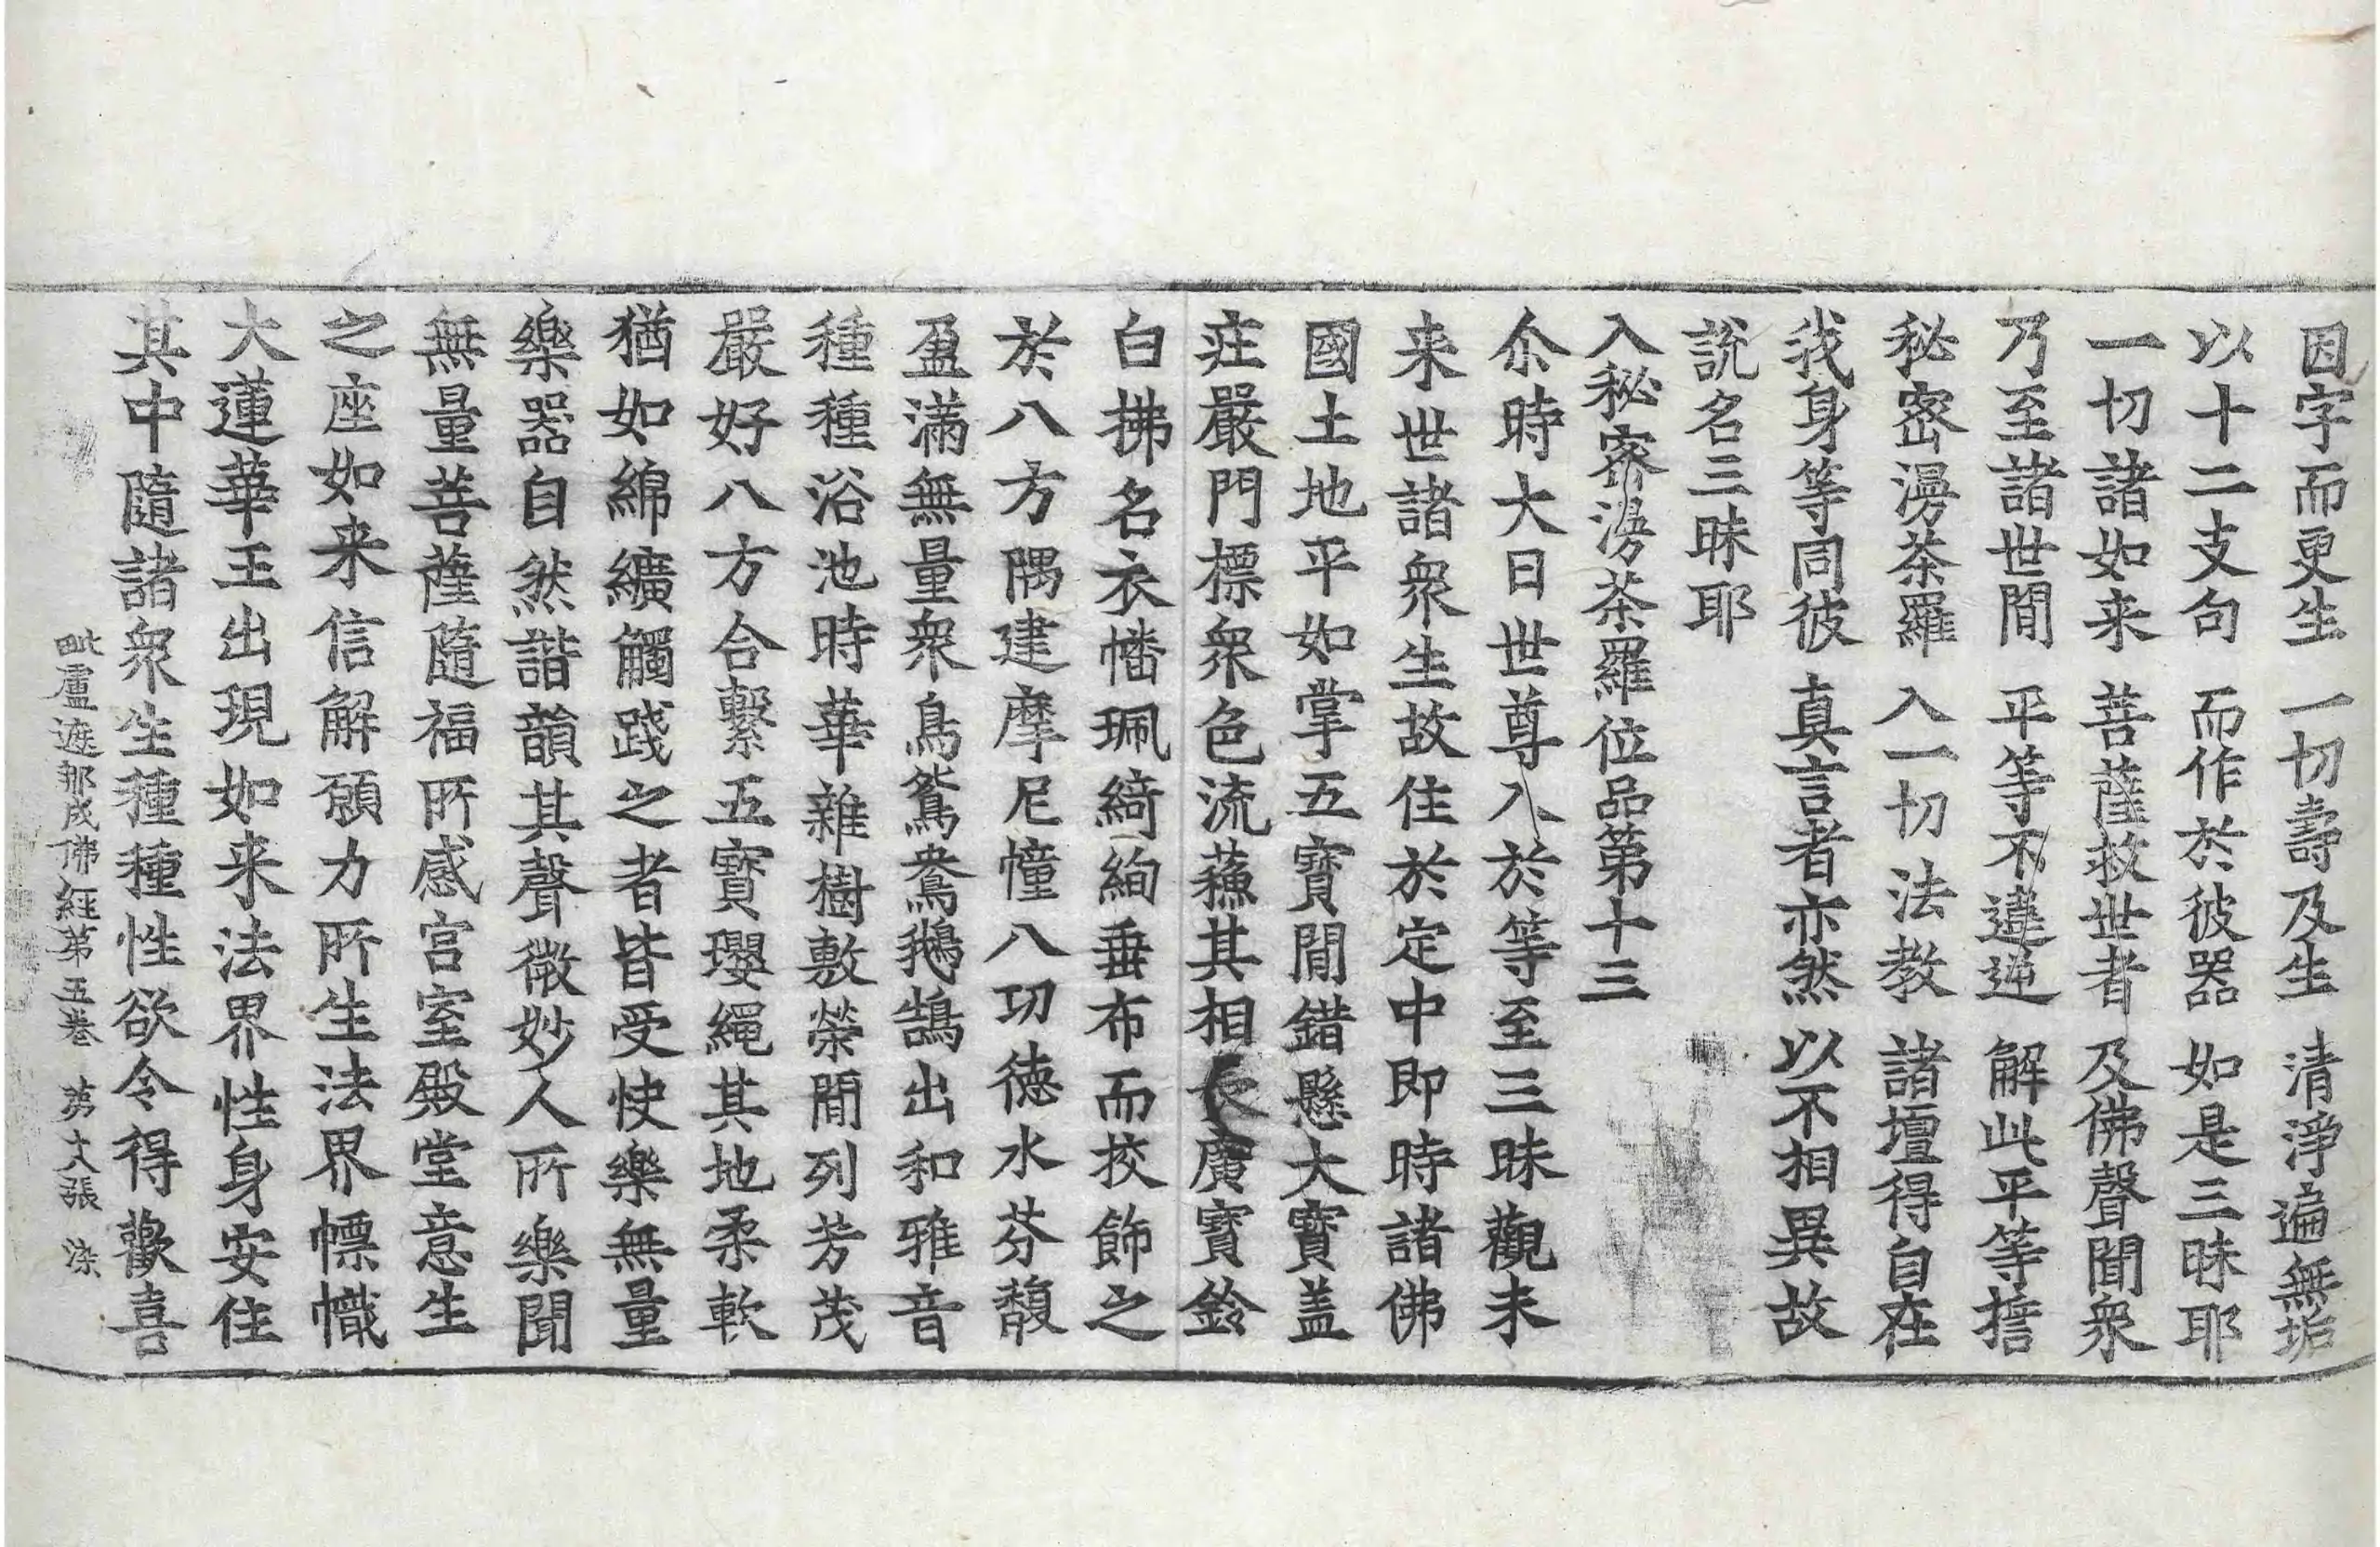 因字而更生　一切壽及生　清淨遍無垢
以十二支句　而作於彼器　如是三昧耶
一切諸如来　菩薩救世者　及佛聲聞衆
乃至諸世閒　平等不違逆　解此平等擔
秘密漫茶羅　入一切法教　諸壇得自在
我身等同彼　真言者亦然　以不相異故
說名三昧耶
入秘密漫茶羅位品第十三
尒時大日世尊入於等至三昧觀未
来世諸衆生故住於定中即時諸佛
國土地平如掌五寶閒錯懸大寶盖
莊嚴門標衆色流蘇其相長廣寶鈴
白拂名衣幡珮綺絢垂布而挍飾之
於八方隅建摩尼幢八功德水芬馥
盈滿無量衆鳥鴛鴦鵝鵠出和雅音
種種浴池時華雜樹敷榮閒列芳茂
嚴好八方合繫五寶瓔繩其地柔軟
猶如綿纊觸踐之者皆受快樂無量
樂器自然諧韻其聲微妙人所樂聞
無量菩薩隨福所感宫室殿堂意生
之座如来信解願力所生法界幖幟
大蓮華王出現如来法界性身安住
其中隨諸衆生種種性欲令得歡喜
毗盧遮那成佛經第五卷　第六張　染